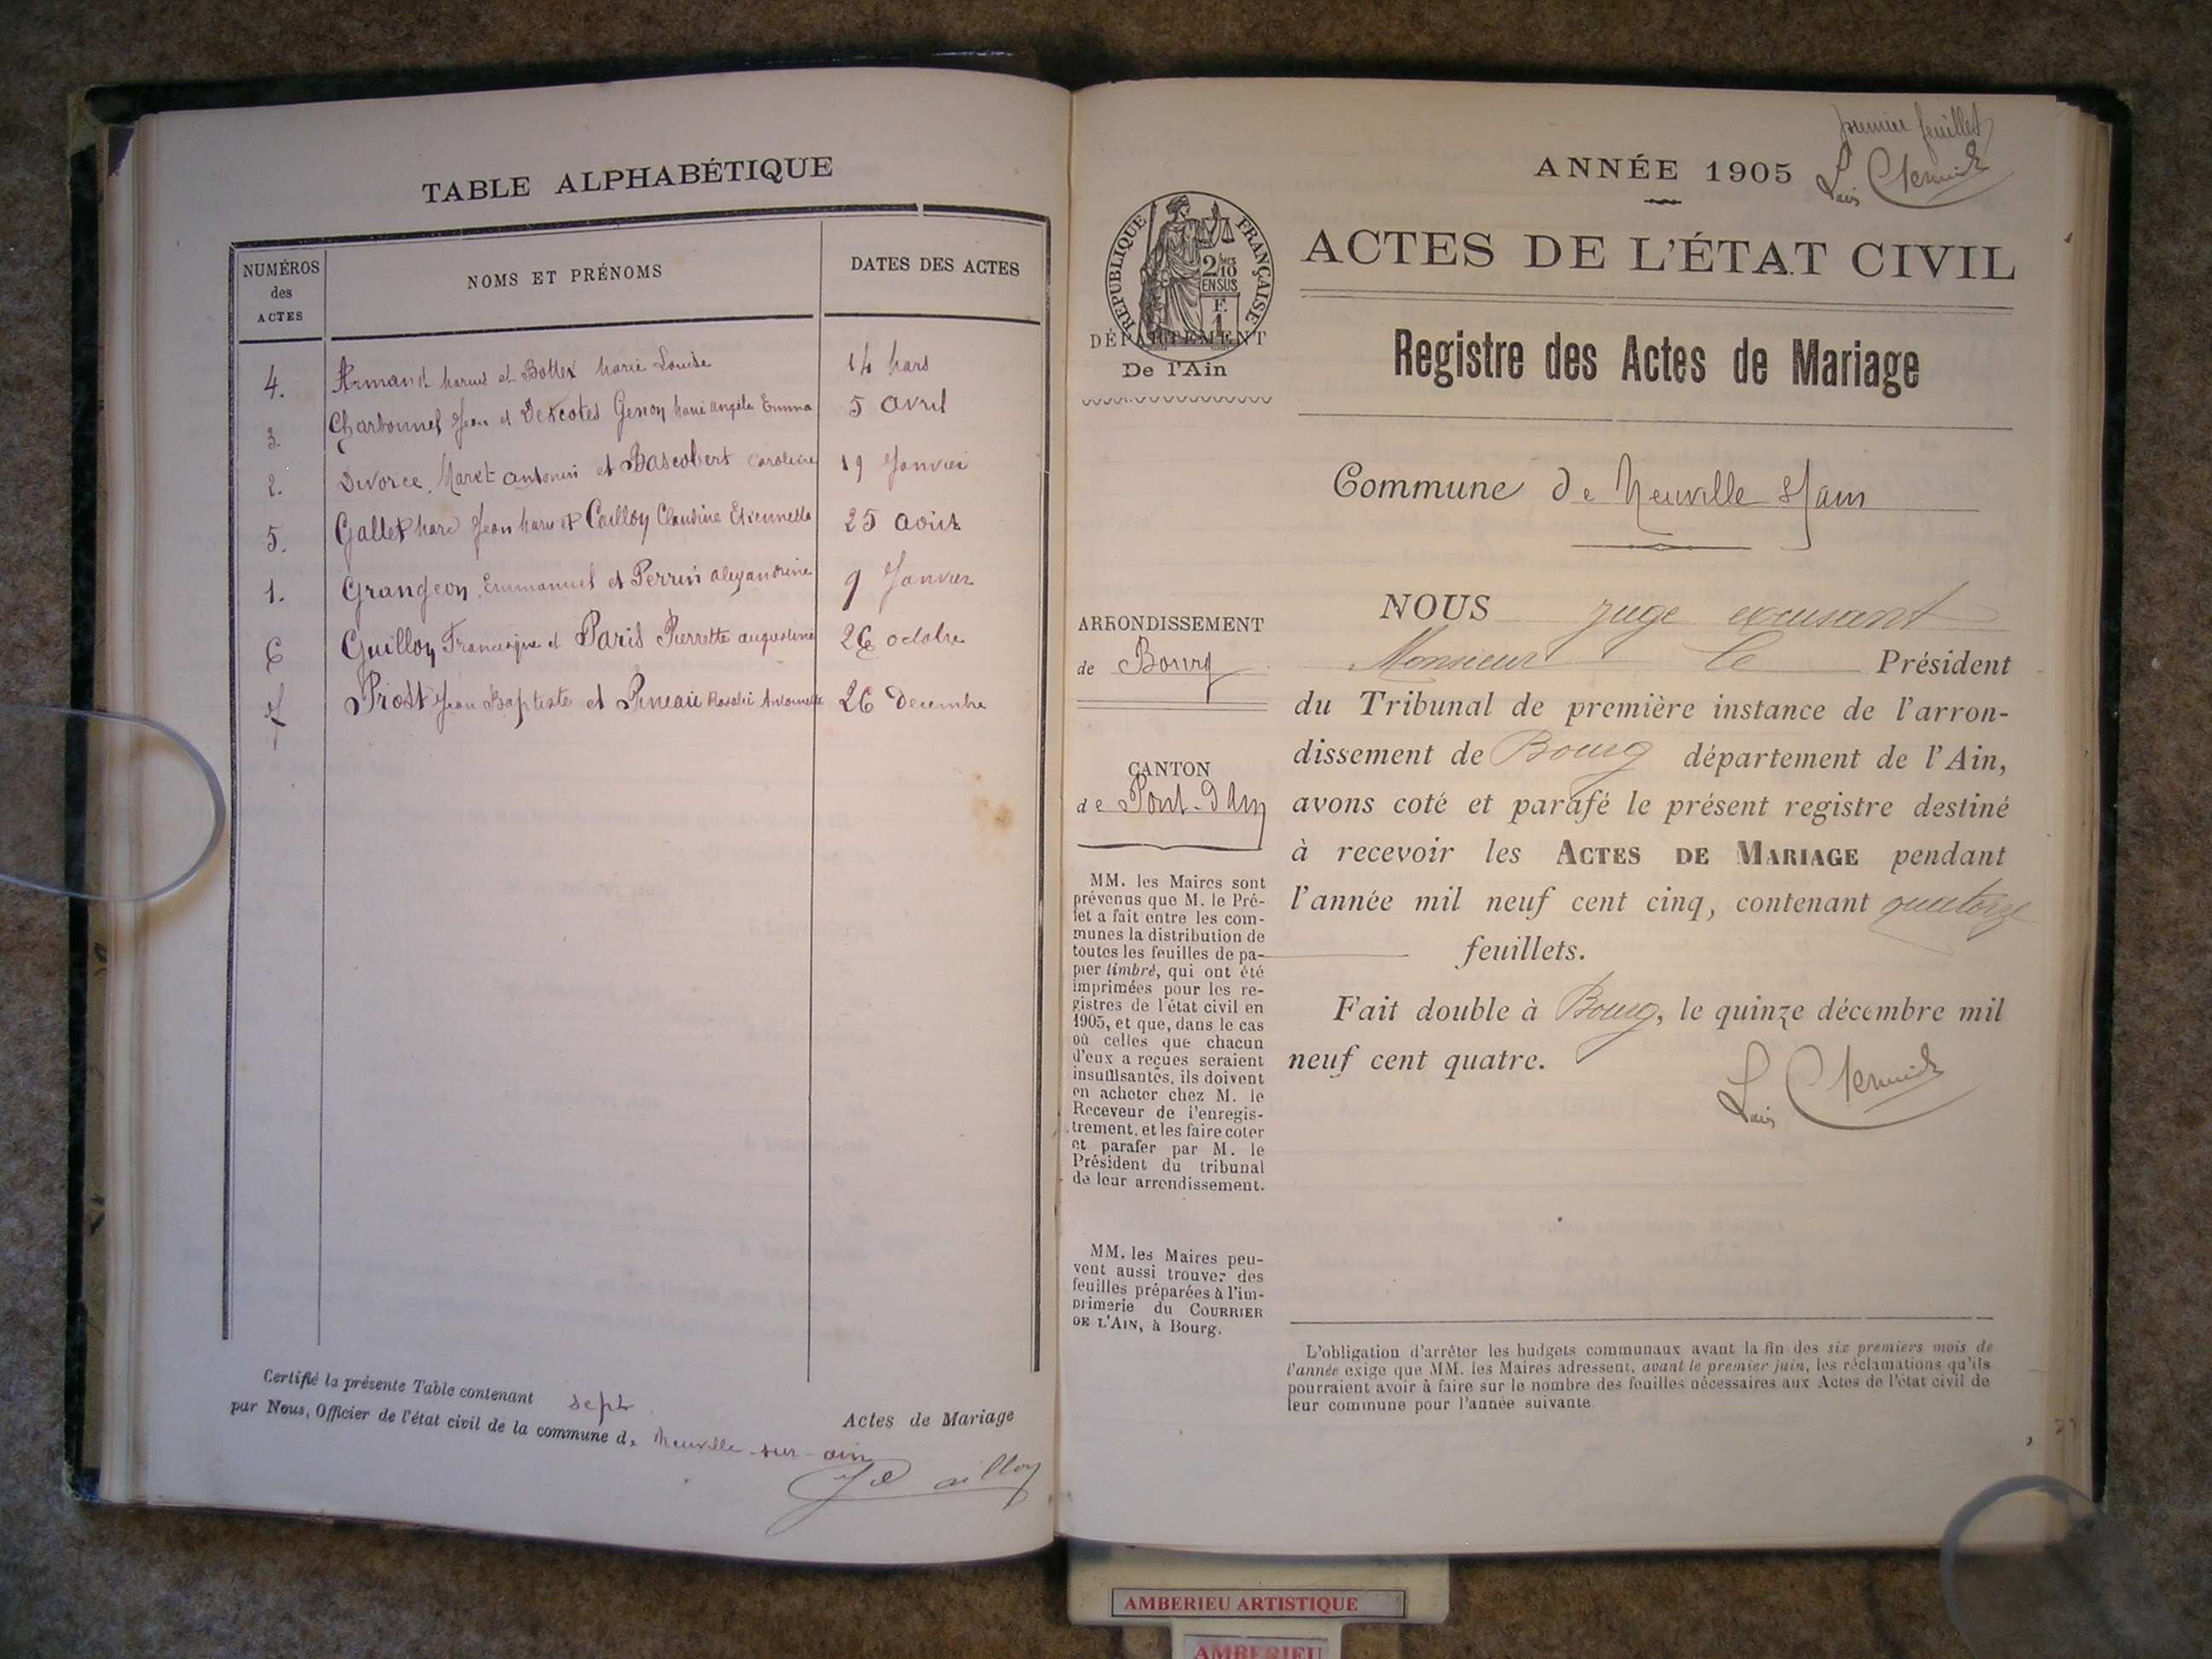 TABLE ALPHABÉTIQUE
NUMÉROS des ACTES
NOMS ET PRÉNOMS
DATES DES ACTES
4. Armand marius et Bottex Marie Louise 14 Mars
3. Charbonnel Jean et Descotes Genon Marie Angèle Emma 5 Avril
2. Divorce, Maret Antonin et Bascobert Caroline 19 Janvier
5. Gallet Marc Jean Marie et Cailloy Claudine Etiennette 25 Août
1. Grangeon, Emmanuel et Perrin Alexandrine 9 Janvier
6 Guilloy Francisque et Paris Pierrette augustine 26 octobre
7 Prost Jean Baptiste et Pineau Rosalie Antoinette 26 Decembre
Certifié la présente Table contenant sept Actes de Mariage
par Nous, Officier de l'état civil de la commune de Neuville-sur-ain
premier feuillet
ANNÉE 1905
RÉPUBLIQUE FRANÇAISE
2/10 EN SUS
F. 1
ACTES DE L'ÉTAT CIVIL
DÉPARTEMENT
De l'Ain
Registre des Actes de Mariage
Commune de Neuville s/ain
ARRONDISSEMENT
de Bourg
CANTON
de Pont-d'Ain
NOUS juge excusant
Monsieur le Président
du Tribunal de première instance de l'arron-
dissement de Bourg département de l'Ain,
avons coté et parafé le présent registre destiné
à recevoir les ACTES DE MARIAGE pendant
l'année mil neuf cent cinq, contenant quatorze
feuillets.
Fait double à Bourg, le quinze décembre mil
neuf cent quatre.
MM. les Maires sont
prévenus que M. le Pré-
fet a fait entre les com-
munes la distribution de
toutes les feuilles de pa-
pier timbré, qui ont été
imprimées pour les re-
gistres de l'état civil en
1905, et que, dans le cas
où celles que chacun
d'eux a reçues seraient
insuffisantes, ils doivent
en acheter chez M. le
Receveur de l'enregis-
trement, et les faire coter
et parafer par M. le
Président du tribunal
de leur arrondissement.
MM. les Maires peu-
vent aussi trouver des
feuilles préparées à l'im-
primerie du COURRIER
DE L'AIN, à Bourg.
L'obligation d'arrêter les budgets communaux avant la fin des six premiers mois de
l'année exige que MM. les Maires adressent, avant le premier juin, les réclamations qu'ils
pourraient avoir à faire sur le nombre des feuilles nécessaires aux Actes de l'état civil de
leur commune pour l'année suivante.
AMBERIEU ARTISTIQUE
AMBERIEU